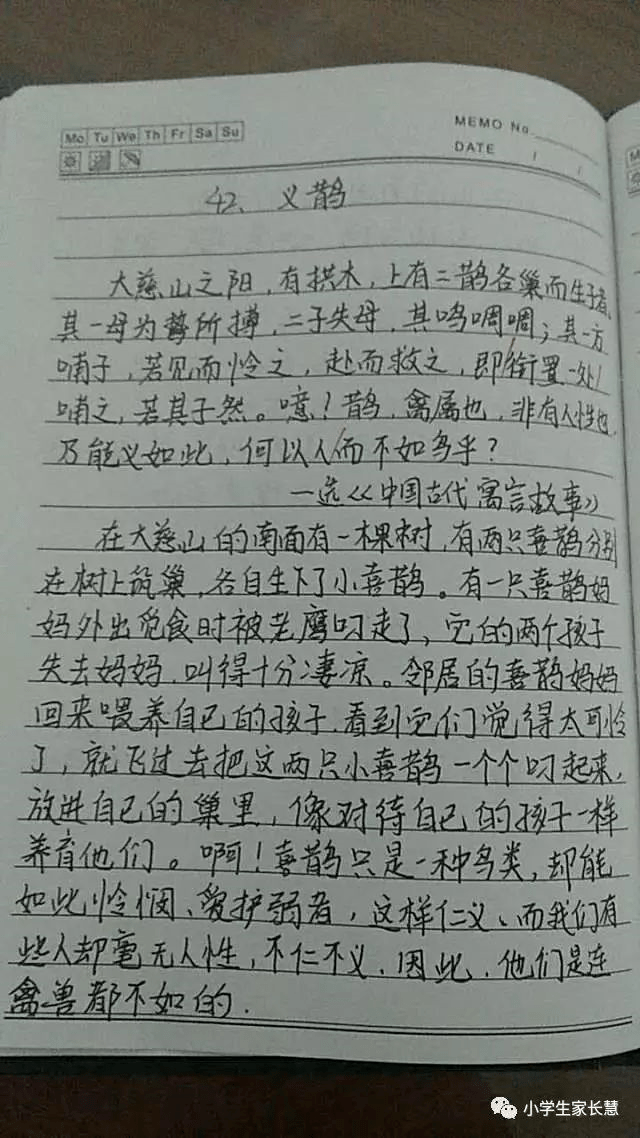 Mo Tu We Th Fr Sa Su
MEMO No.
DATE / /
42、义鹊
大慈山之阳，有拱木，上有二鹊各巢而生子者，
其一母为鸷所搏，二子失母，其鸣啁啁；其一方
哺子，若见而怜之，赴而救之，即衔置一处，
哺之，若其子然。噫！鹊，禽属也，非有人性也，
乃能义如此，何以人而不如鸟乎？
—选《中国古代寓言故事》
在大慈山的南面有一棵树，有两只喜鹊分别
在树上筑巢，各自生下了小喜鹊。有一只喜鹊妈
妈外出觅食时被老鹰叼走了，它的两个孩子
失去妈妈，叫得十分凄凉。邻居的喜鹊妈妈
回来喂养自己的孩子，看到它们觉得太可怜
了，就飞过去把这两只小喜鹊一个个叼起来，
放进自己的巢里，像对待自己的孩子一样
养育他们。啊！喜鹊只是一种鸟类，却能
如此怜悯、爱护弱者，这样仁义、而我们有
些人却毫无人性，不仁不义，因此，他们是连
禽兽都不如的.
小学生家长慧